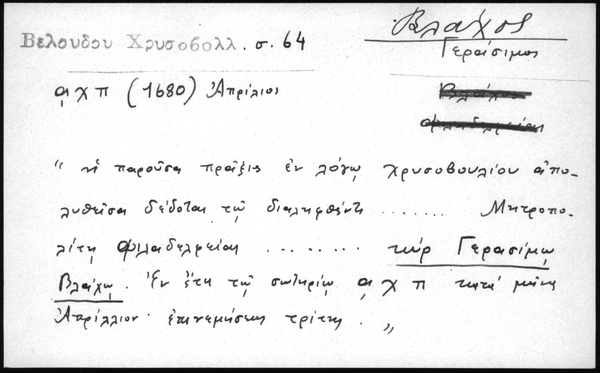 Βελουδου Χρυσοβολλ. σ. 64
Βλάχος
Γεράσιμος
͵αχπ (1680) Ἀπρίλιος
Βλάχος
Φιλαδελφείας
" ἡ παροῦσα πρᾶξις ἐν λόγῳ χρυσοβουλίου ἀπο-
λυθεῖσα δέδοται τῷ διαληφθέντι ....... Μητροπο-
λίτῃ Φιλαδελφείας ........ κὺρ Γερασίμῳ
Βλάχῳ. Ἐν ἔτει τῷ σωτηρίῳ ͵αχπ κατὰ μῆνα
Ἀπρίλλιον· ἐπινεμήσεως τρίτης. „